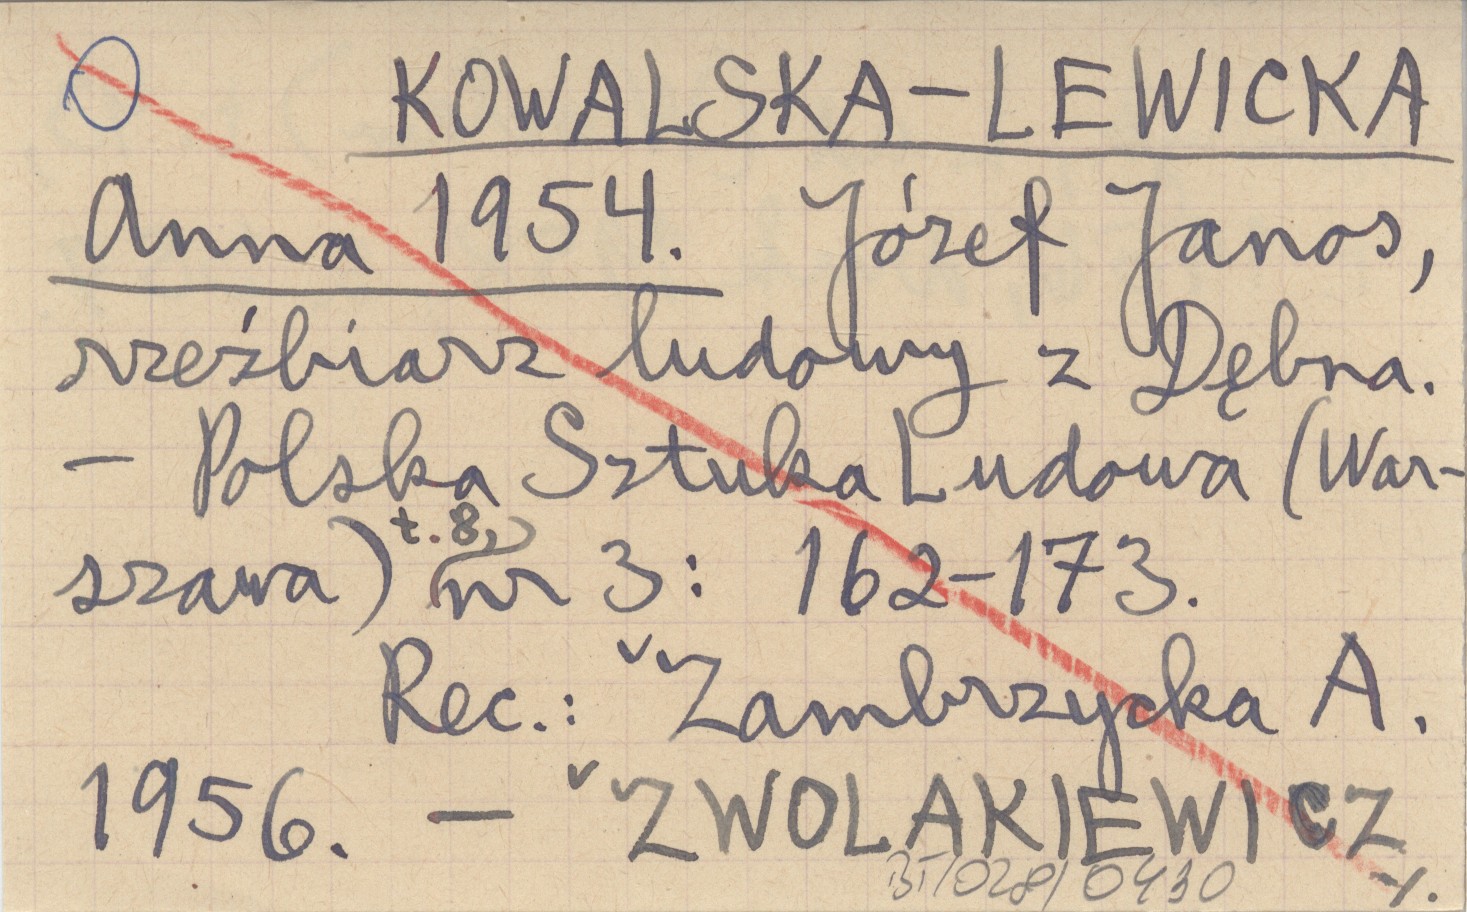 KOWALSKA-LEWICKA
Anna 1954. Józef Janos,
rzeźbiarz ludowy z Dębna.
– Polska Sztuka Ludowa (War-
szawa) t. 8, nr 3: 162-173.
Rec.: Zambrzycka A.
1956. – ZWOLAKIEWICZ
BI/028/0430